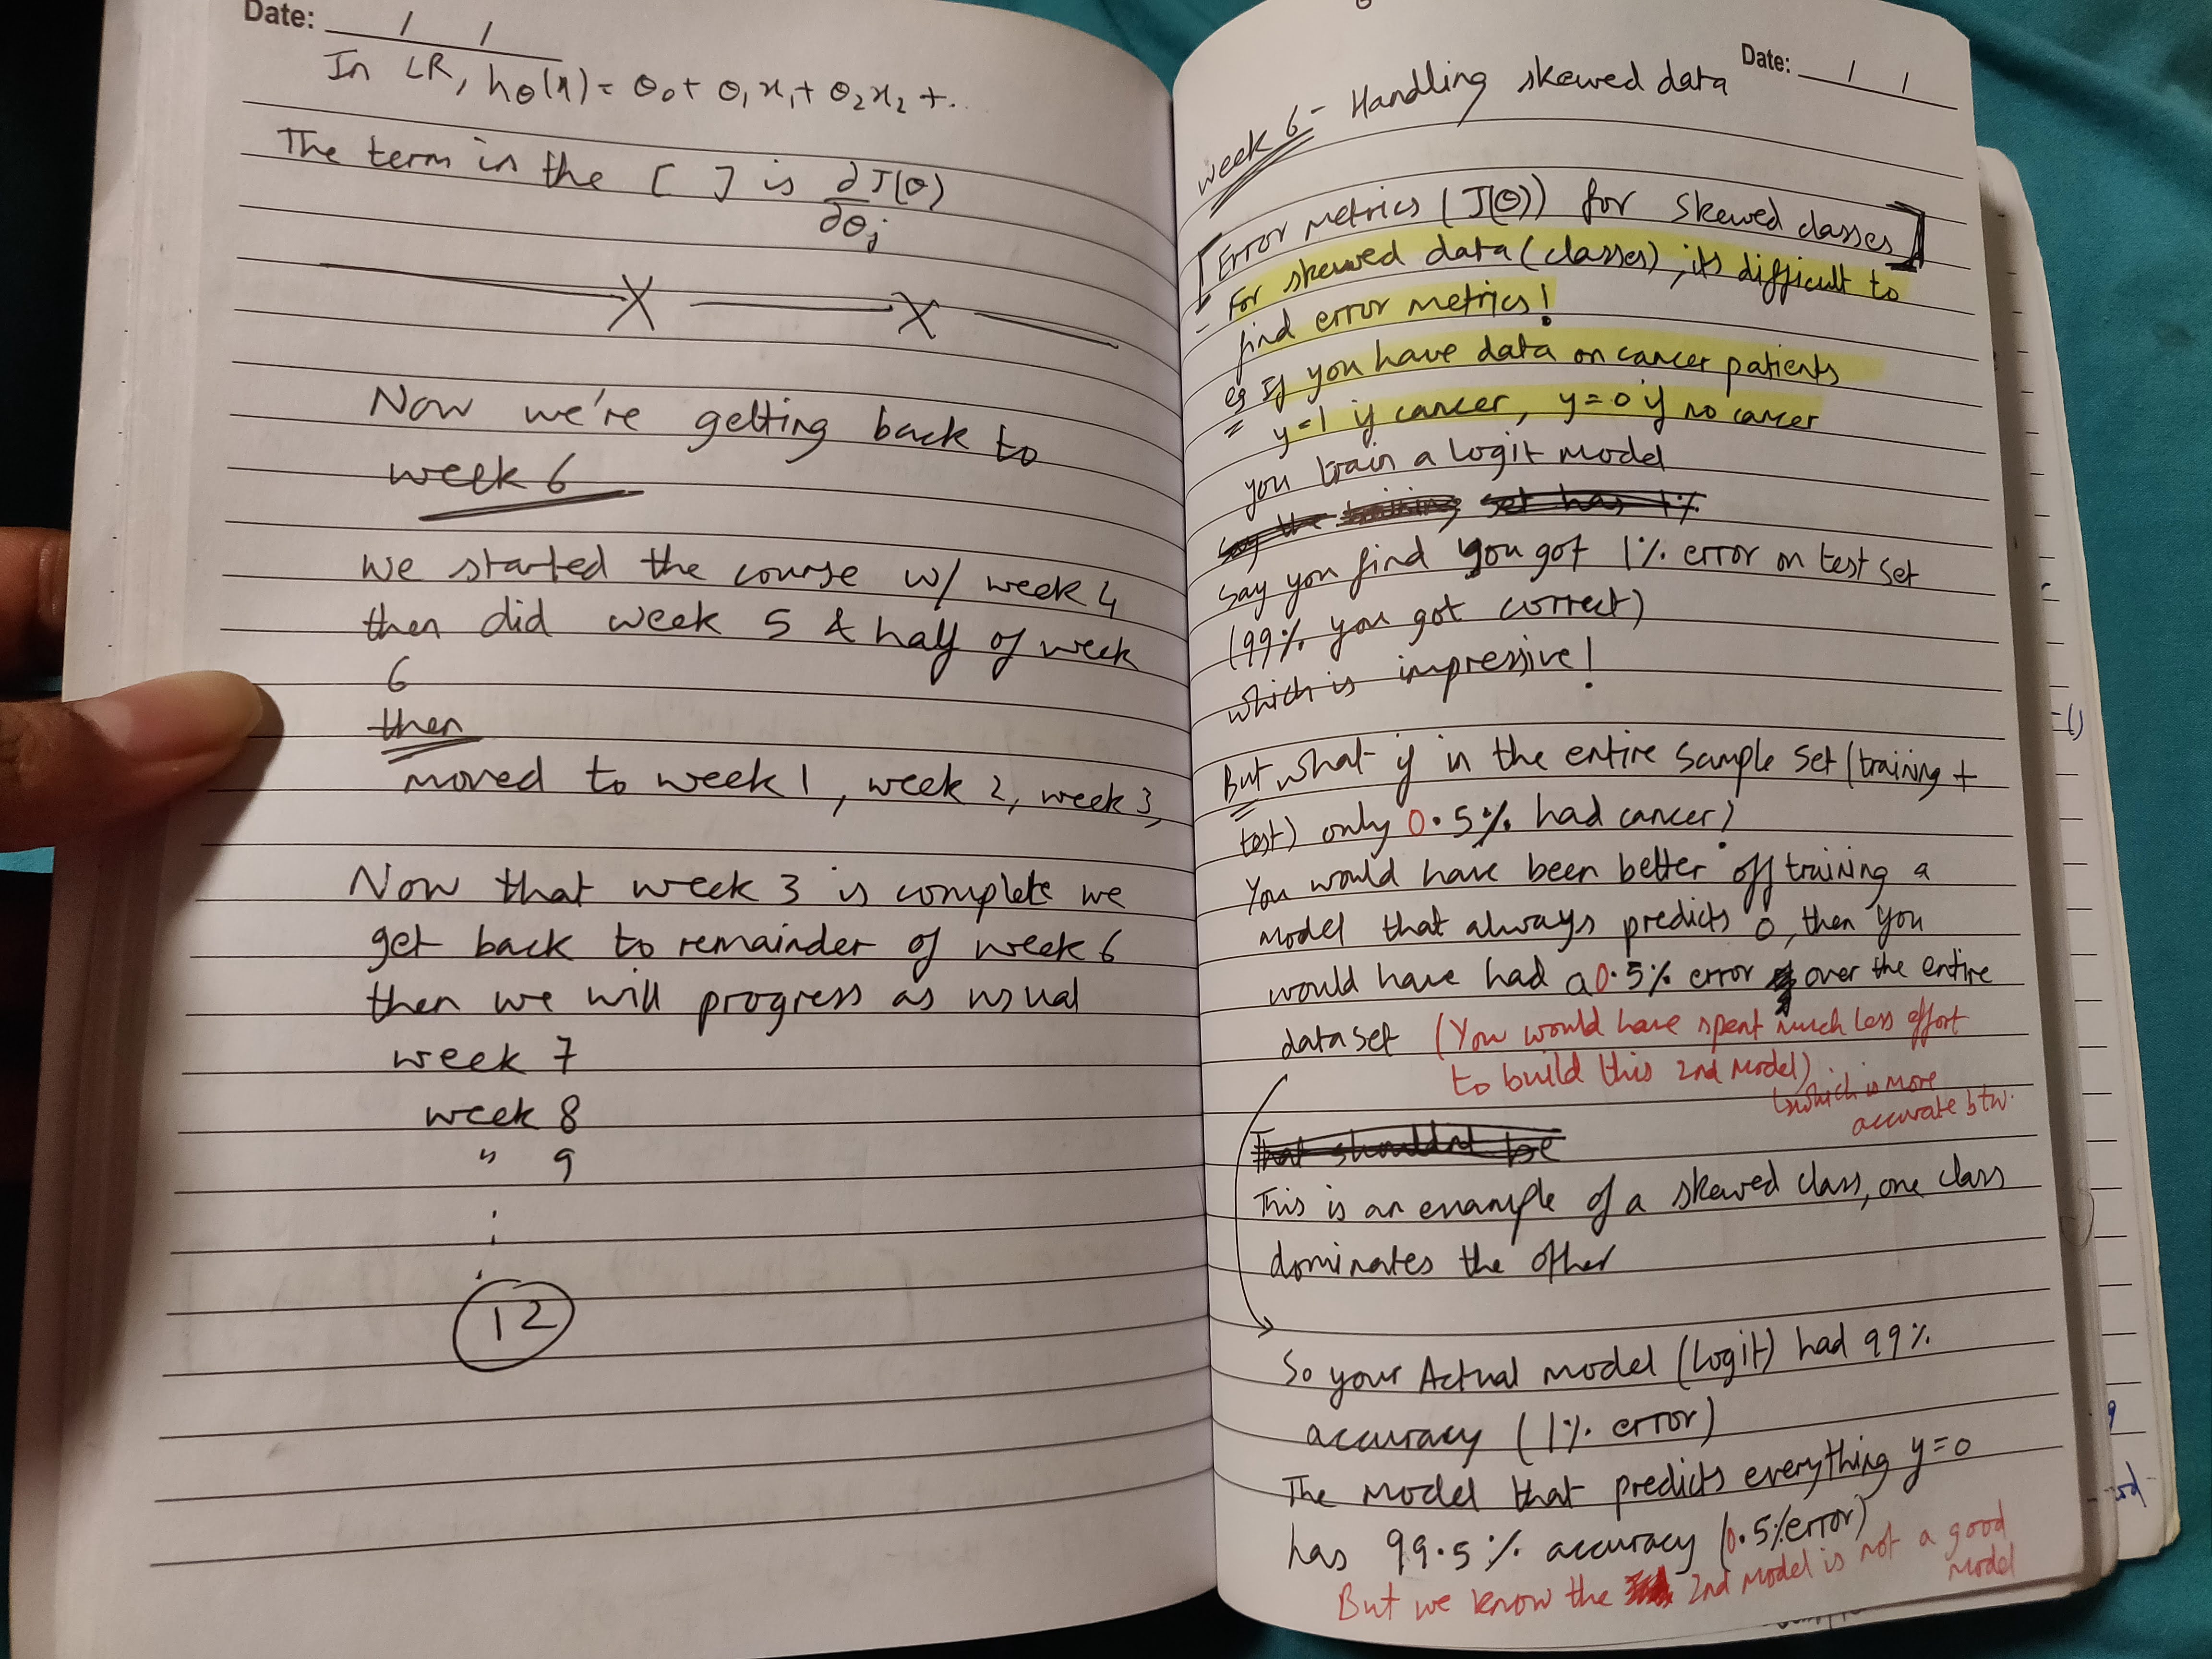 Date: / /
In LR, hθ(x) = θ₀ + θ₁x₁ + θ₂x₂ + ..
The term in the [ ] is ∂J(θ)
∂θj
X X
Now we're getting back to
week 6
we started the course w/ week 4
then did week 5 & half of week
6
then
moved to week 1, week 2, week 3,
Now that week 3 is complete we
get back to remainder of week 6
then we will progress as usual
week 7
week 8
" 9
.
.
.
12
Date: / /
week 6 - Handling skewed data
[Error metrics (J(θ)) for skewed classes]
- For skewed data (classes), its difficult to
find error metrics!
eg If you have data on cancer patients
y=1 if cancer, y=0 if no cancer
you train a logit model
say the training set has 1%
say you find you got 1% error on test set
(99% you got correct)
which is impressive!
But what if in the entire sample set (training +
test) only 0.5% had cancer?
You would have been better off training a
model that always predicts 0, then you
would have had a 0.5% error over the entire
dataset (You would have spent much less effort
to build this 2nd model)
which is more
accurate btw.
That shouldnt be
This is an example of a skewed class, one class
dominates the other
So your Actual model (logit) had 99%
accuracy (1% error)
The model that predicts everything y=0
has 99.5% accuracy (0.5% error)
But we know the 2nd model is not a good
model